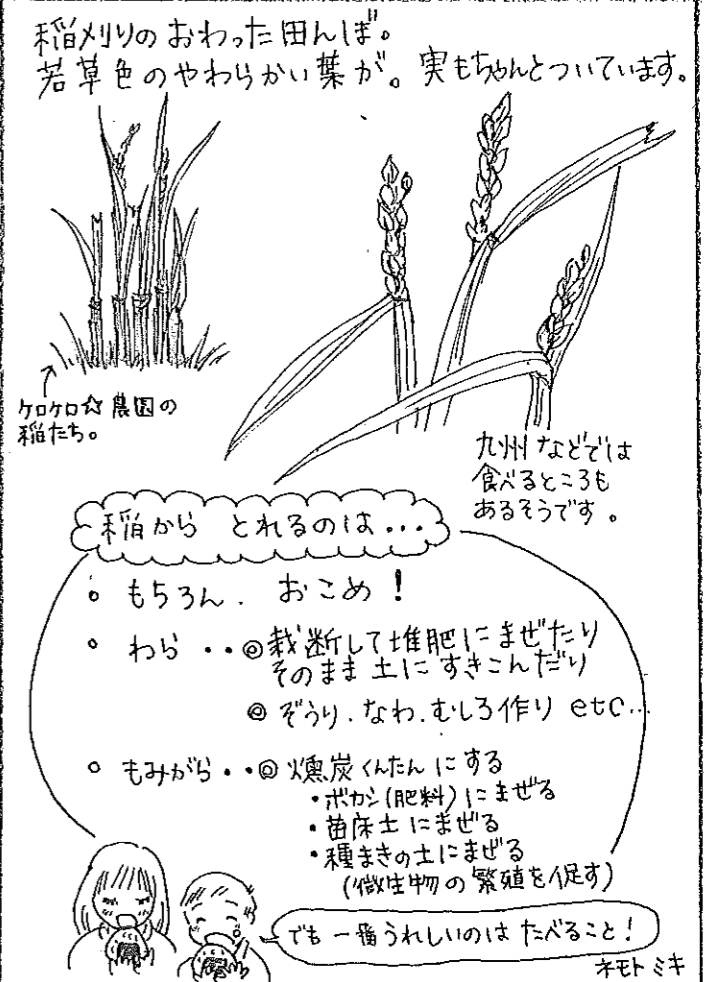 稲刈りのおわった田んぼ。
若草色のやわらかい葉が。実もちゃんとついています。
ケロケロ☆農園の
稲たち。
九州などでは
食べるところも
あるそうです。
稲から とれるのは...
○ もちろん. おこめ!
○ わら ‥◎裁断して堆肥にまぜたり
そのまま土にすきこんだり
◎ぞうり.なわ.むしろ作り etc...
○ もみがら‥◎燻炭くんたんにする
・ボカシ(肥料)にまぜる
・苗床土にまぜる
・種まきの土にまぜる
(微生物の繁殖を促す)
でも一番うれしいのは たべること!
ネモト ミキ